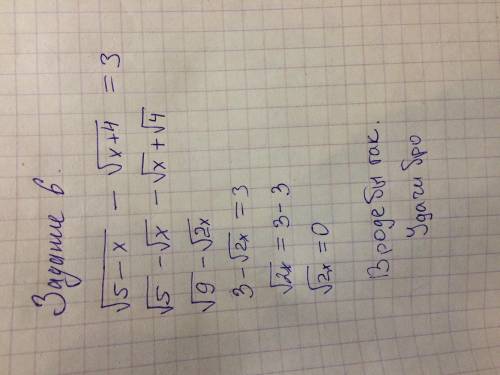 Задание в.
√5-x - √x+4 = 3
√5 - √x - √x + √4
√9 - √2x
3 - √2x = 3
√2x = 3 - 3
√2x = 0
Вроде бы так.
Удачи бро